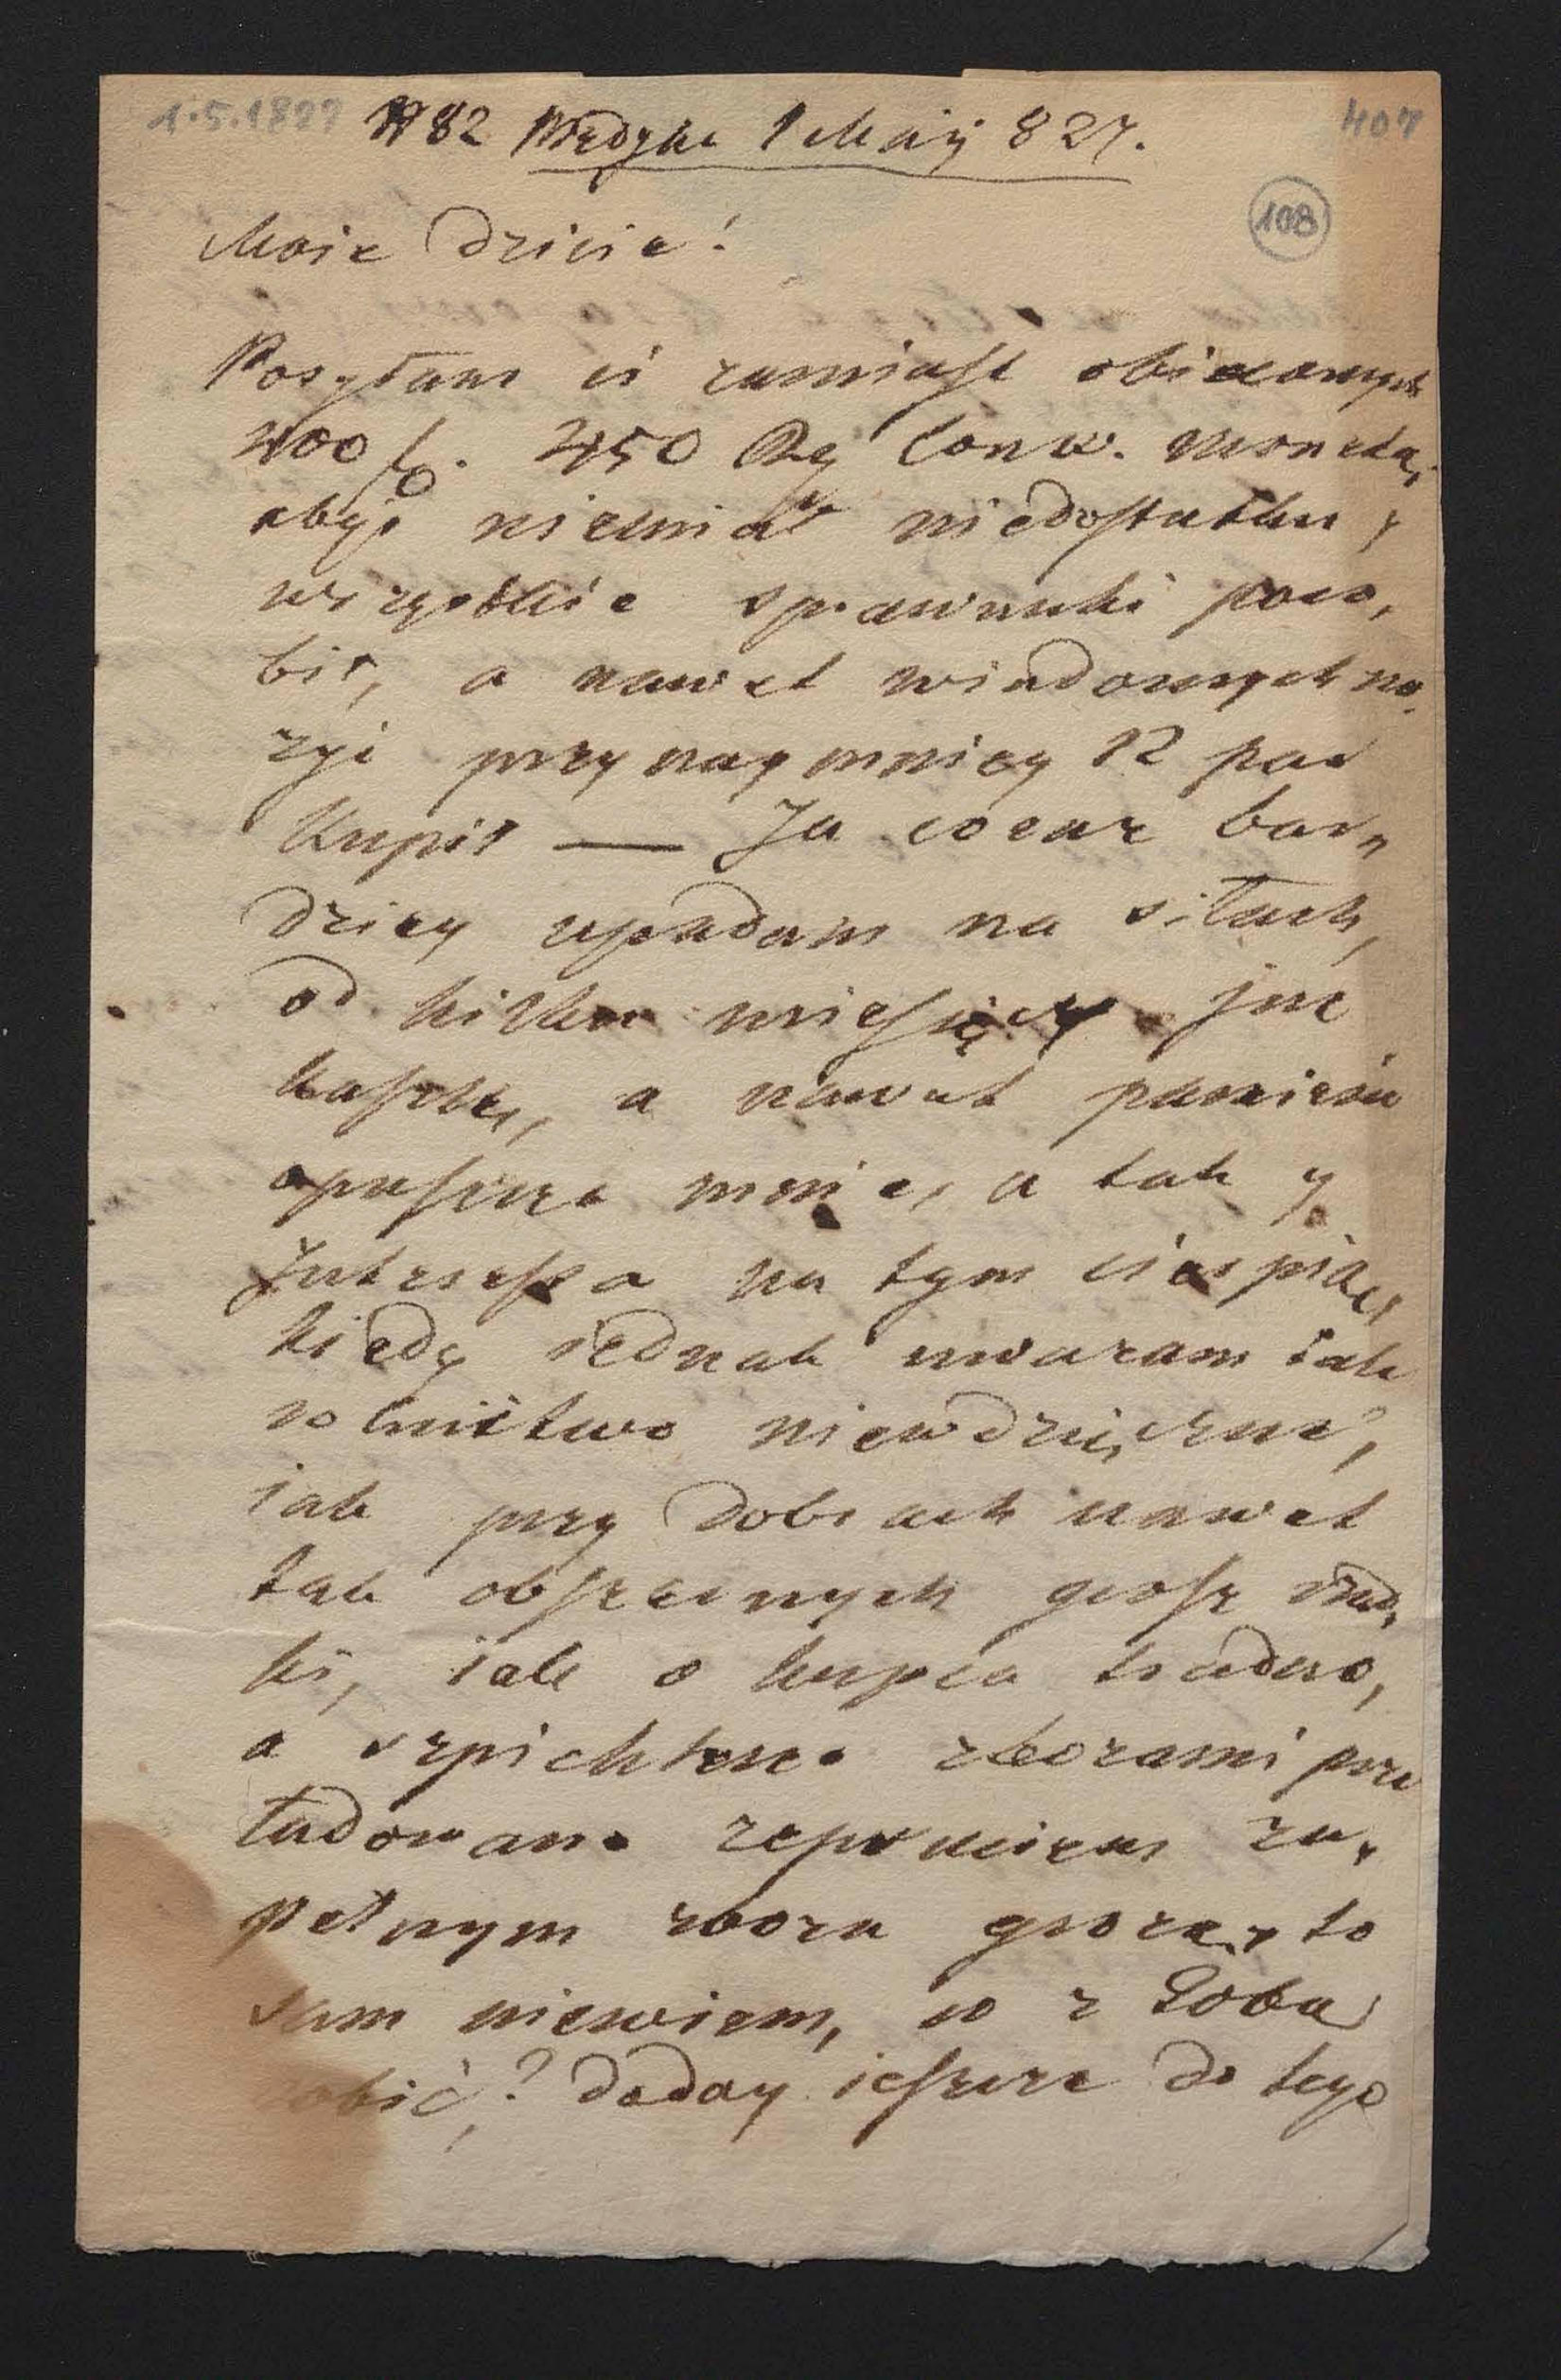 1.5.1827 N 82 Medyka 1 Maij 827. 407
108
Moie Dziecie!
Posyłam ci zamiast obiecanych
400 f. 450 Ry Conw. monetą,
abyś niemiał niedostatku y
wszystkie sprawunki poro,
bił, a nawet wiadomych no,
życ przynaymniey 12 par
kupił — Ja coraz bar,
dziey upadam na siłach,
od kilku miesięcy już
kaszlę, a nawet pamięć
opuszcza mnie, a tak y
Interessa na tym cierpią,
kiedy iednak uważam iak
rolnictwo niewdzięczne,
iak przy dobrach nawet
tak obszernych grosz rzad,
ki, iak o kupca trudno,
a szpichlerze zbożami prze
ładowane zepsuciem zu,
pełnym zboża grożą, to
sam niewiem, co z Sobą
robić,? daday ieszcze do tego